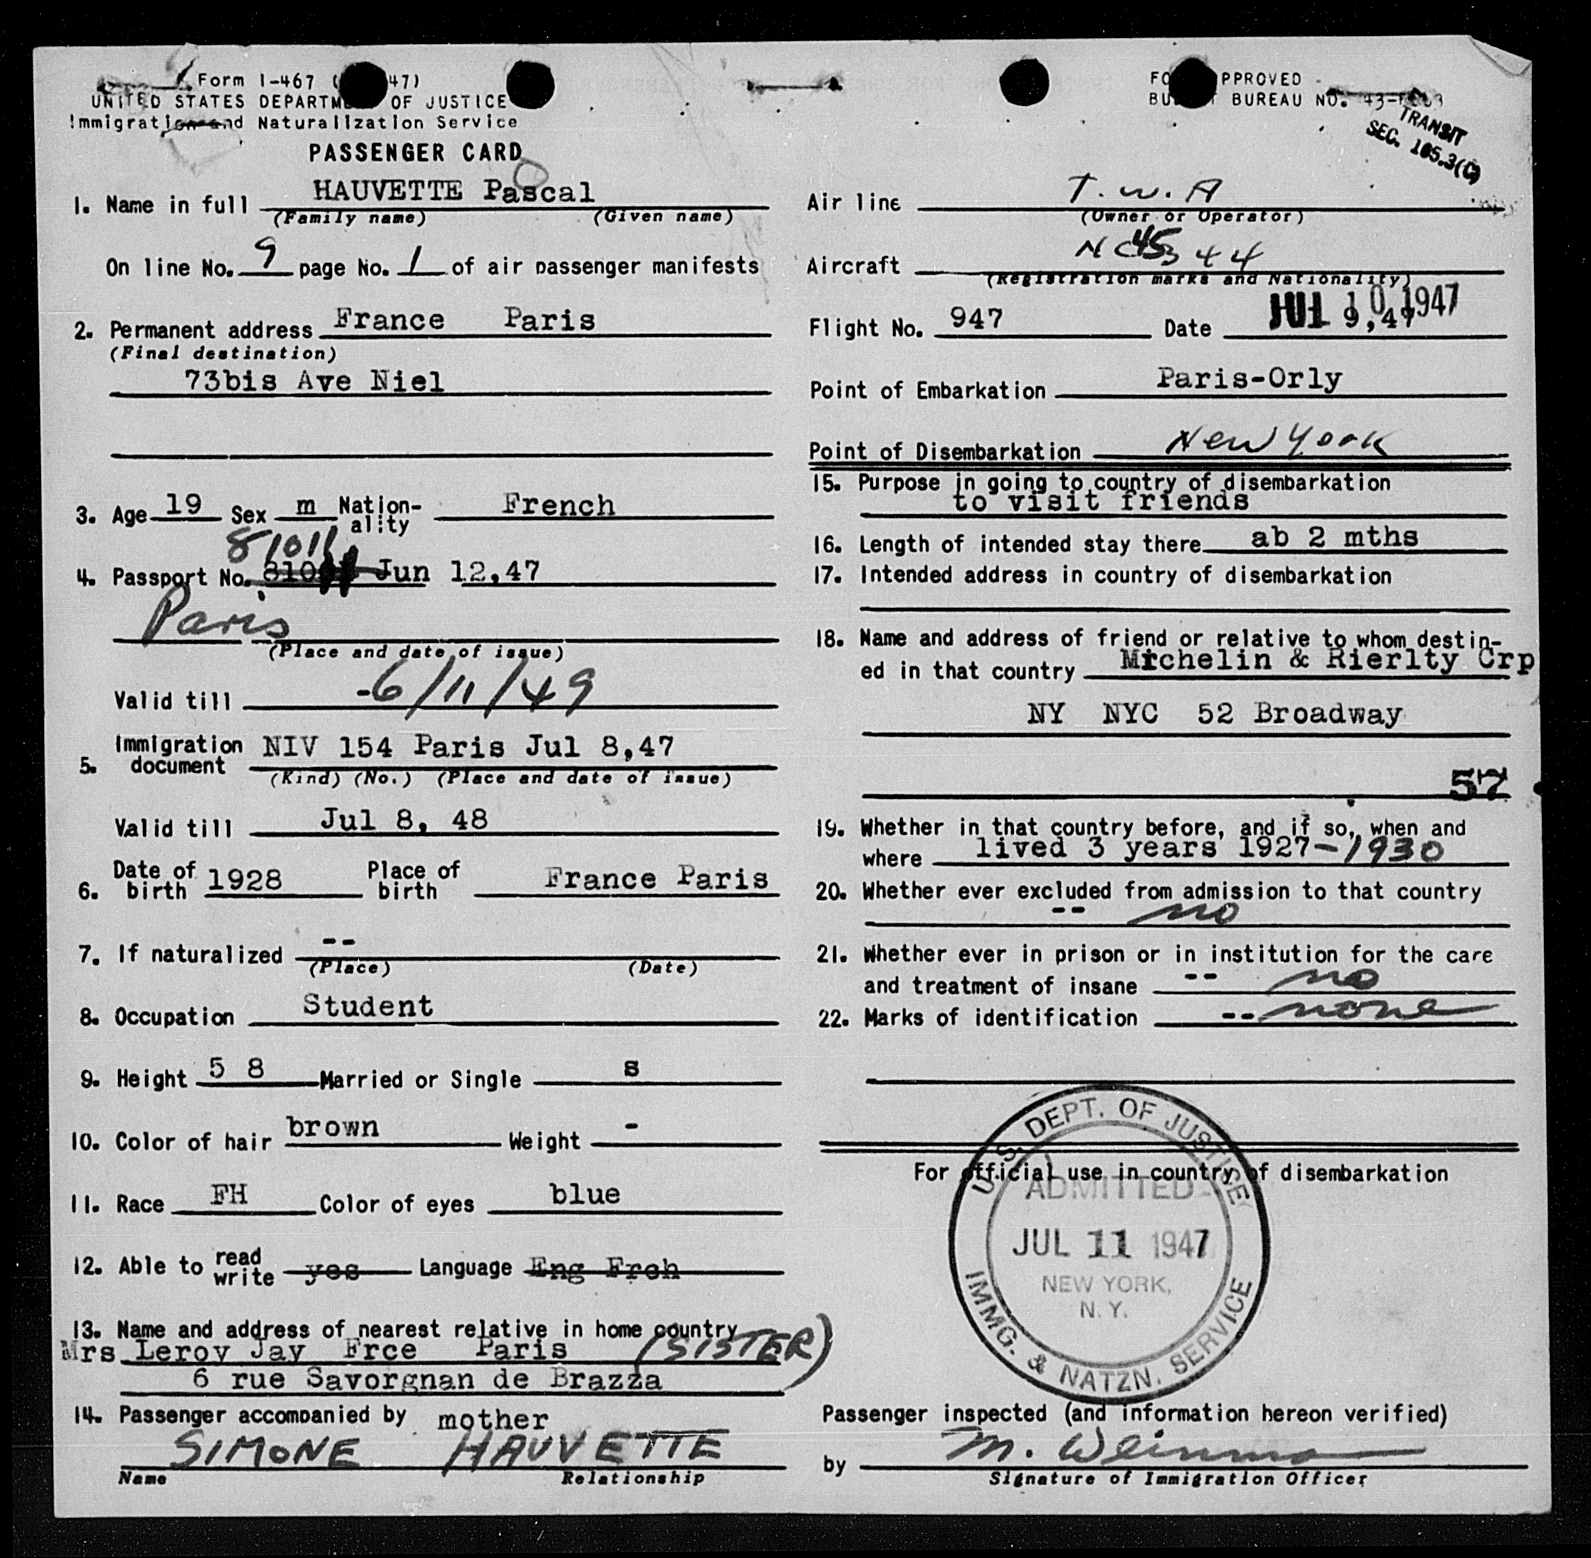 Form I-467 ( 47)
UNITED STATES DEPARTMENT OF JUSTICE
Immigration and Naturalization Service
PASSENGER CARD
1. Name in full HAUVETTE Pascal
(Family name) (Given name)
On line No. 9 page No. 1 of air passenger manifests
2. Permanent address France Paris
(Final destination)
73bis Ave Niel
3. Age 19 Sex m Nation-ality French
81011
4. Passport No. Jun 12,47
Paris
(Place and date of issue)
Valid till 6/11/49
5. Immigration document NIV 154 Paris Jul 8,47
(Kind) (No.) (Place and date of issue)
Valid till Jul 8, 48
6. Date of birth 1928 Place of birth France Paris
7. If naturalized --
(Place) (Date)
8. Occupation Student
9. Height 5 8 Married or Single s
10. Color of hair brown Weight -
11. Race FH Color of eyes blue
12. Able to read write yes Language Eng Frch
13. Name and address of nearest relative in home country
Mrs Leroy Jay Frce Paris (SISTER)
6 rue Savorgnan de Brazza
14. Passenger accompanied by mother
SIMONE HAUVETTE
Name Relationship
FO PPROVED
BU BUREAU NO. 43-
TRANSIT
SEC. 105.3(C)
Air line T.W.A
(Owner or Operator)
Aircraft NC 45344
(Registration marks and Nationality)
Flight No. 947 Date JUL 10 1947 9,47
Point of Embarkation Paris-Orly
Point of Disembarkation New York
15. Purpose in going to country of disembarkation
to visit friends
16. Length of intended stay there ab 2 mths
17. Intended address in country of disembarkation
18. Name and address of friend or relative to whom destin-
ed in that country Michelin & Rierlty Crp
NY NYC 52 Broadway
57
19. Whether in that country before, and if so, when and
where lived 3 years 1927-1930
20. Whether ever excluded from admission to that country
-- no
21. Whether ever in prison or in institution for the care
and treatment of insane -- no
22. Marks of identification -- none
For official use in country of disembarkation
U.S. DEPT. OF JUSTICE
ADMITTED
JUL 11 1947
NEW YORK,
N.Y.
IMMG. & NATZN. SERVICE
Passenger inspected (and information hereon verified)
by M. Weinman
Signature of Immigration Officer